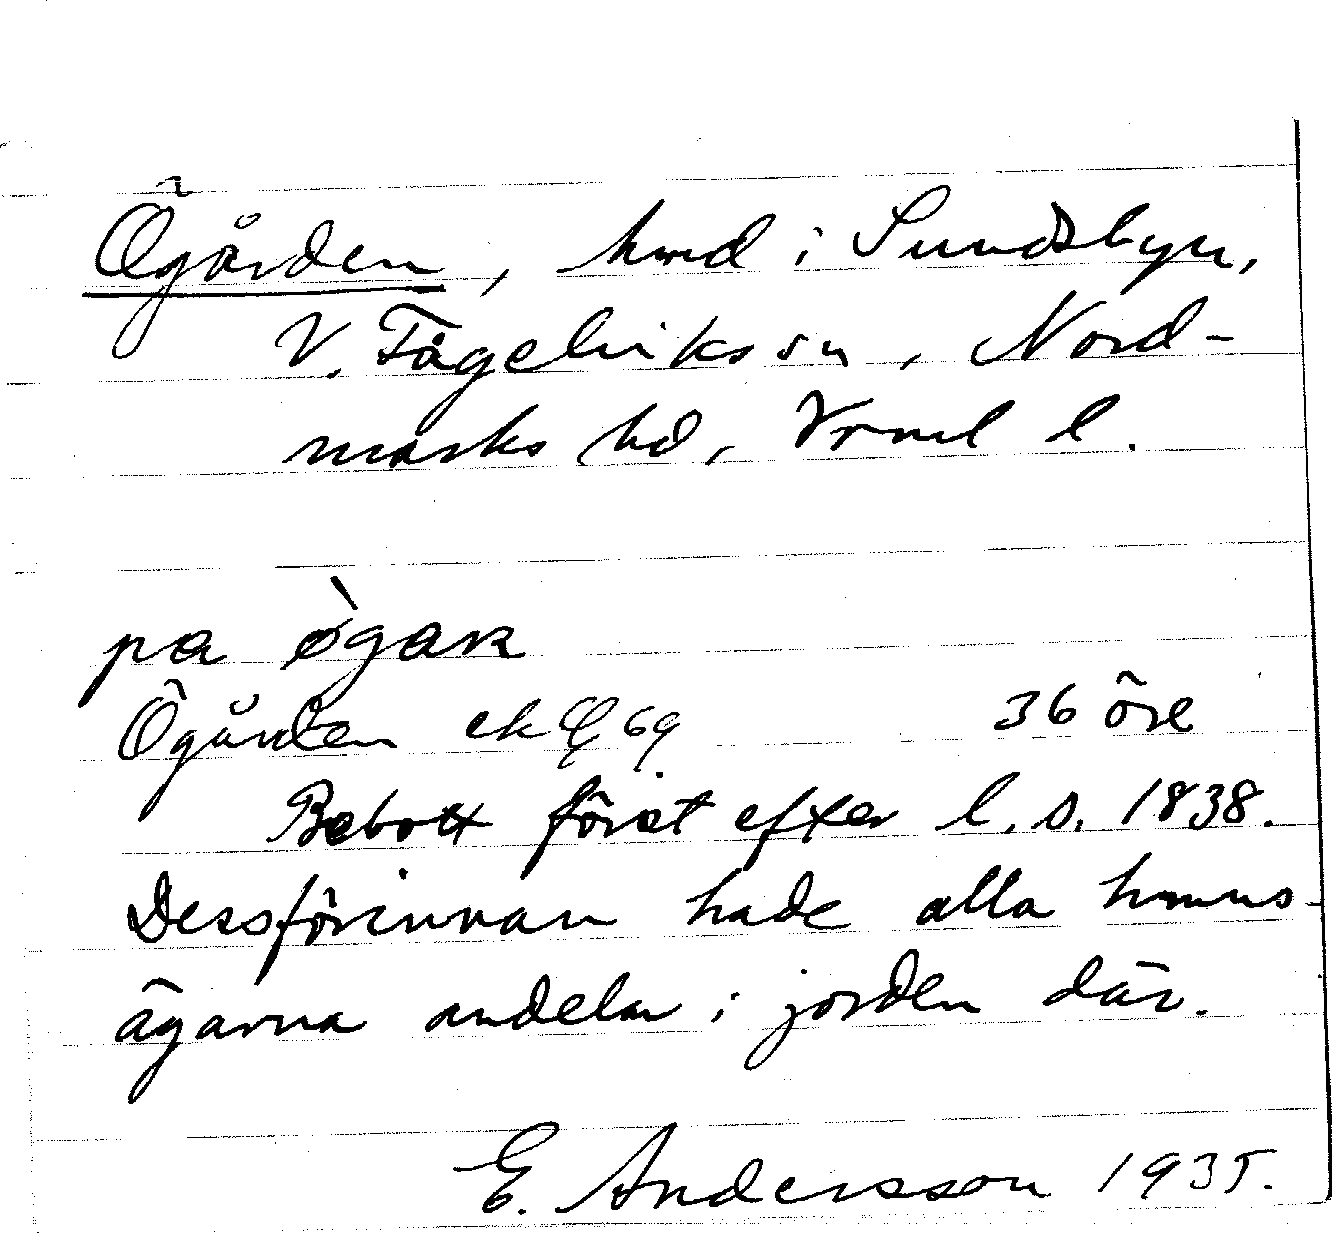 Ögården, hmd i Sundsbyn,
V. Fågelviks sn, Nord-
marks hd, Vrml l.
pa ògaɴ
Ögården ek 69 36 öre
Bebott först efter l. s. 1838.
Dessförinnan hade alla hmns-
ägarna andelar i jorden där.
E. Andersson 1935.